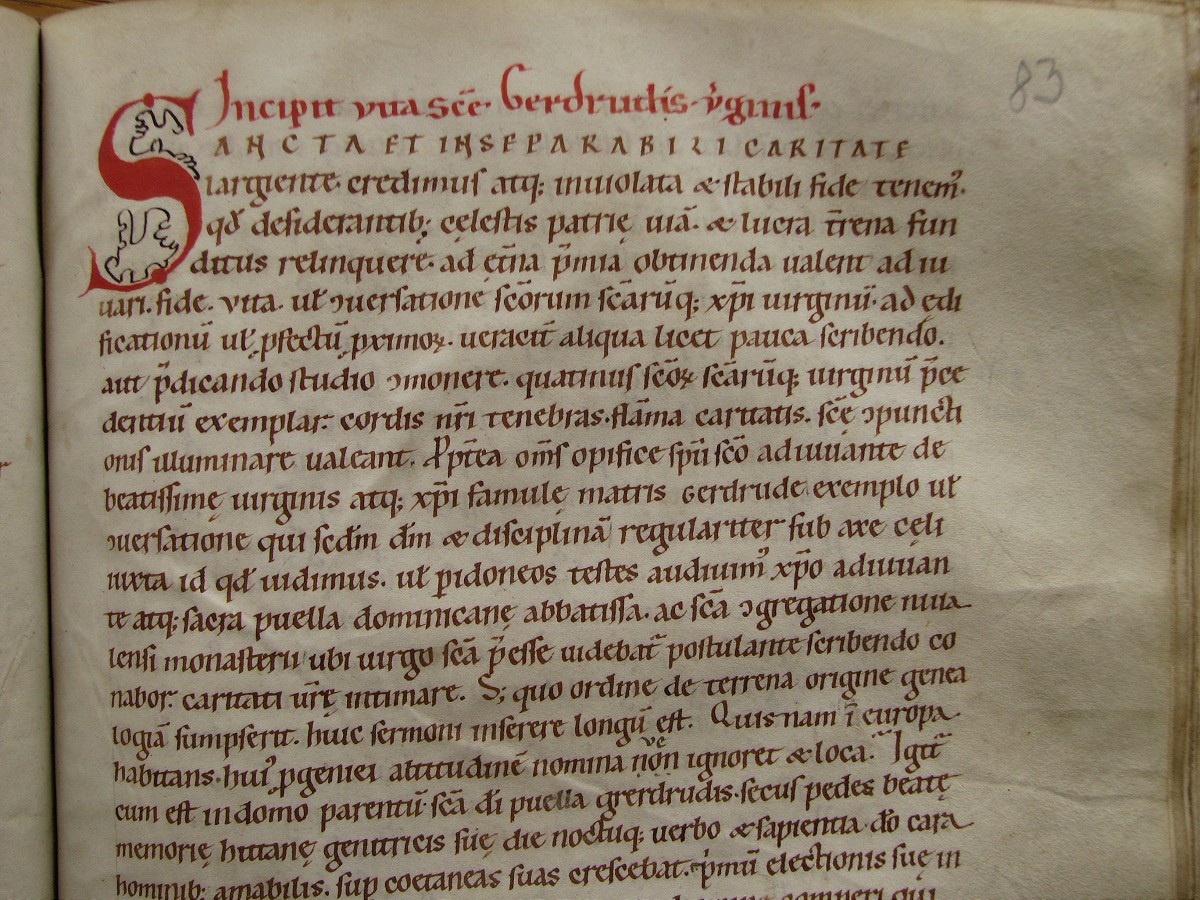 83
Incipit vita scē· Gerdrudis· v̓ginis·
SANCTA ET INSEPARABILI CARITATE
largiente· credimus atq; inuiolata & stabili fide tenem᷒·
qd̄ desiderantib; cęlestis patrię uiā· & lucra t̄rena fun
ditus relinquere· ad ęt̄na p̄mia obtinenda ualent ad iu
uari. fide. vita. uł ɔuersatione scōrum scārūq; xp̄i uirginū· ad ędi
ficationū uł ꝑfectū ꝓximoꝝ. ueracit̄ aliqua licet pauca scribendo.
aut p̄dicando studio ɔmonere. quatinus scōꝝ scārūq; uirginū p̄ce
dentiū exemplar cordis nr̄i tenebras· flāma caritatis. scę̄ ɔpuncti
onis illuminare ualeant. Ꝓpt̄ea om̄s opifice sp̄u scō adiuuante de
beatissimę uirginis atq; xp̄i famulę matris Gerdrude exemplo uł
ɔuersatione qui scdm̄ dm̄ & disciplinā regulariter sub axe cęli
iuxta id qd̄ uidimus. uł ꝑ idoneos testes audiuim᷒ xp̄o adiuuan
te atq; sacra puella dominicanę abbatissa. ac scā ɔgregatione niuia
lensi monasterii ubi uirgo scā p̄esse uidebat̄ postulante scribendo co
nabor. caritati ur̄ę intimare. S; quo ordine de terrena origine genea
logiā sumpserit. huic sermoni inserere longū est. Quis nam ī europa
habitans· hui᷒ ꝓgeniei altitudinē nomina nōn ignoret & loca. Igit̄
cum est in domo parentū· scā dī puella grerdrudis· secus pedes beatę
memorię hittanę genitricis suę die noctuq; verbo & sapientia· dō cara
hominib; amabilis. sup coetaneas suas crescebat. p̓mū electionis suę in